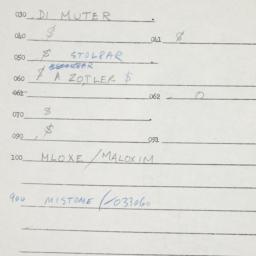 030 DI MUTER
040 $ 041 $
050 $ STOLPAR
060 $ A ZOTLER $
061 062 0
070 $
090 $ 091
100 MLOXE/MALOXIM
900 MISTOME